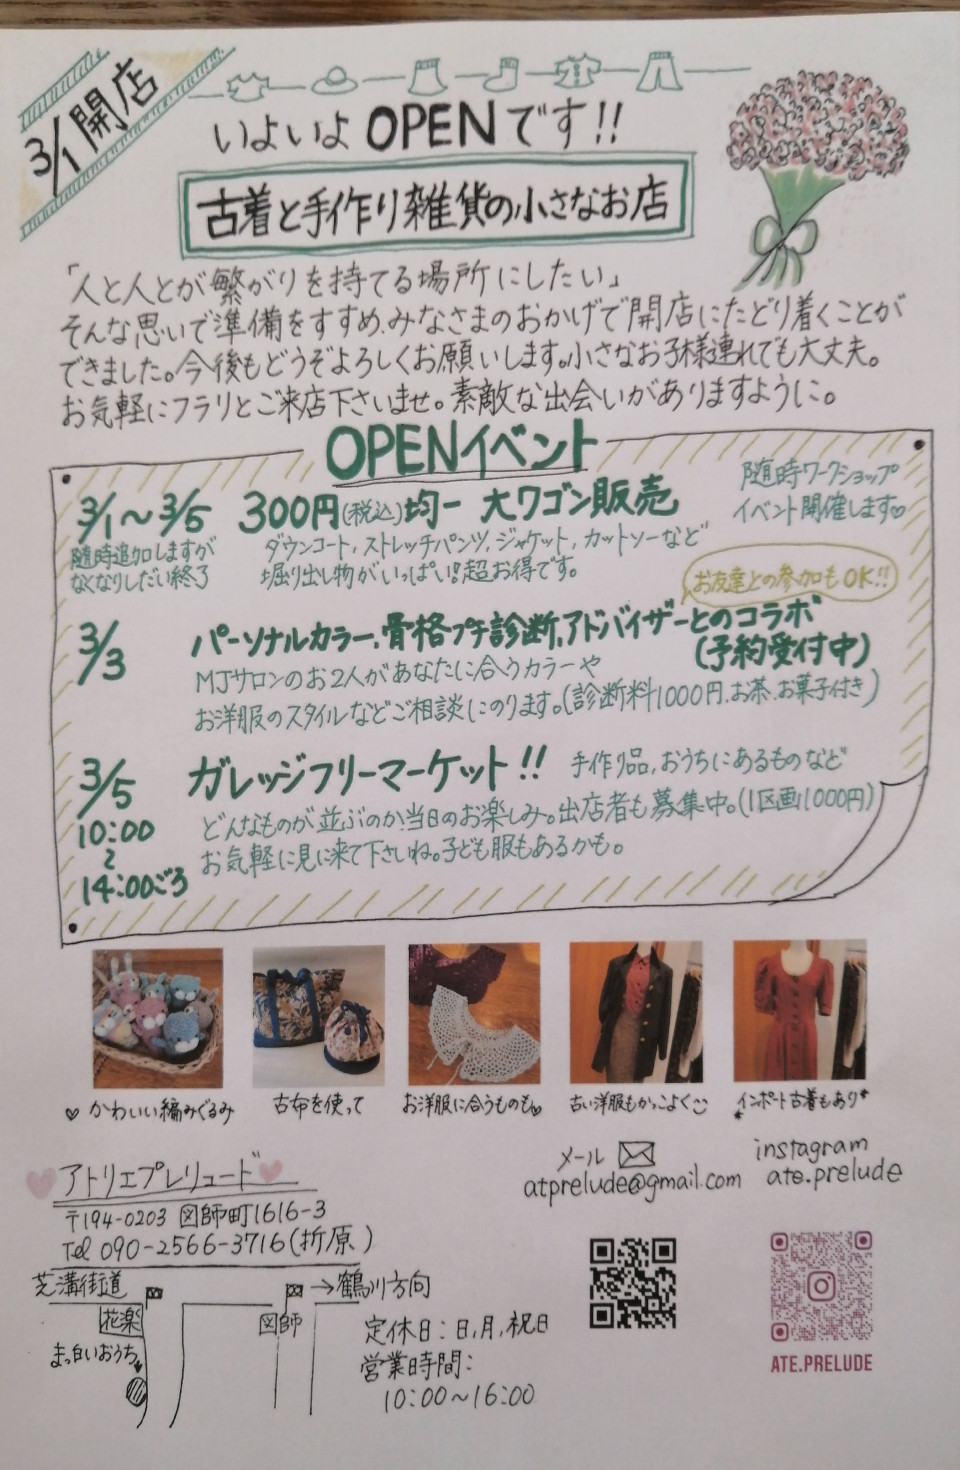 3/1 開店
いよいよ OPENです!!
古着と手作り雑貨の小さなお店
「人と人とが繋がりを持てる場所にしたい」
そんな思いで準備をすすめ、みなさまのおかげで開店にたどり着くことが
できました。今後もどうぞよろしくお願いします。小さなお子様連れでも大丈夫。
お気軽にフラリとご来店下さいませ。素敵な出会いがありますように。
OPENイベント
随時ワークショップ
イベント開催します♡
3/1〜3/5 300円(税込)均一 大ワゴン販売
随時追加しますが
なくなりしだい終了
ダウンコート, ストレッチパンツ, ジャケット, カットソーなど
堀り出し物がいっぱい!!超お得です。
お友達との参加もOK!!
3/3 パーソナルカラー、骨格プチ診断、アドバイザーとのコラボ
(予約受付中)
MJサロンのお2人があなたに合うカラーや
お洋服のスタイルなどご相談にのります。(診断料1000円、お茶、お菓子付き)
3/5 ガレッジフリーマーケット!! 手作り品, おうちにあるものなど
10:00
〜
14:00ごろ
どんなものが並ぶのか当日のお楽しみ。出店者も募集中。(1区画1000円)
お気軽に見に来て下さいね。子ども服もあるかも。
♡ かわいい編みぐるみ
古布を使って
お洋服に合うものも♡
古い洋服もかっこよく
インポート古着もあり
アトリエプレリュード
〒194-0203 図師町1616-3
Tel 090-2566-3716(折原)
メール
atprelude@gmail.com
instagram
ate.prelude
芝溝街道
→鶴川方向
花楽
図師
まっ白いおうち
定休日:日,月,祝日
営業時間:
10:00〜16:00
ATE.PRELUDE